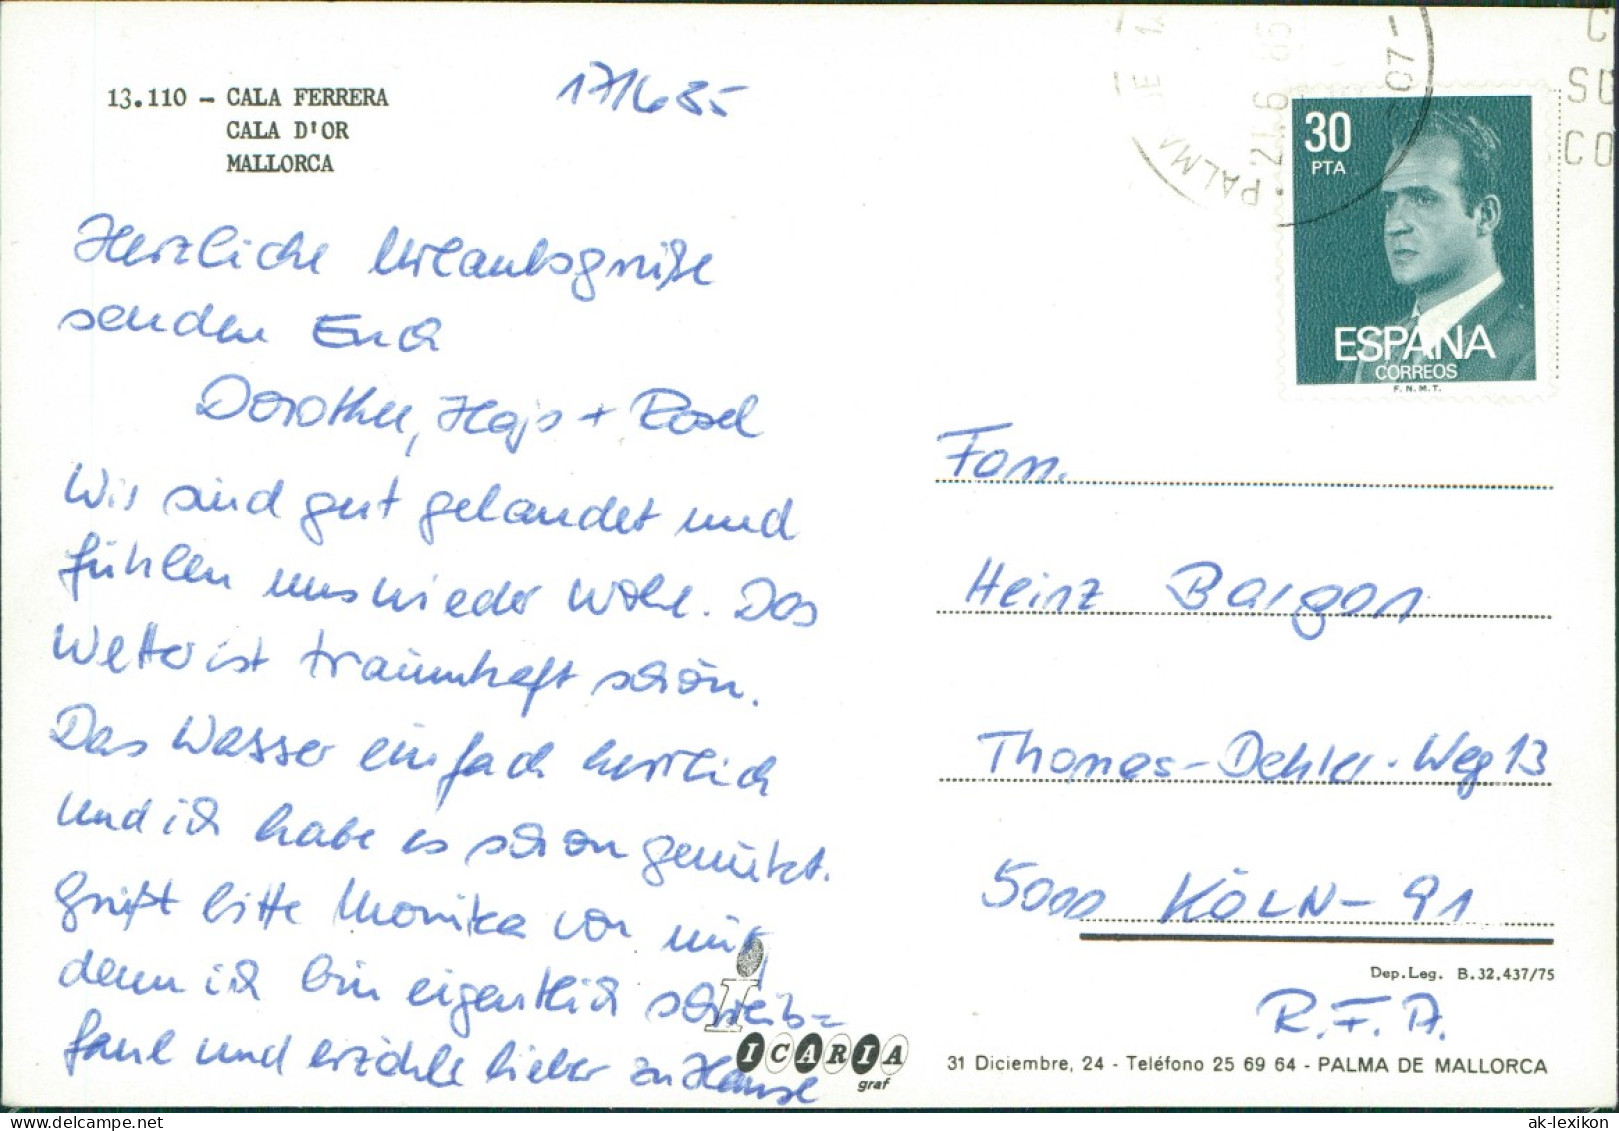 13.110 - CALA FERRERA
CALA D'OR
MALLORCA
17/6 85
Herzliche Urlaubsgrüße
senden Euch
Dorothee, Hajo + Rosel
Wir sind gut gelandet und
fühlen uns wieder wohl. Das
Wetter ist traumhaft schön.
Das Wasser einfach herrlich
und ich habe es schon genützt.
Grüßt bitte Monika von mir,
denn ich bin eigentlich schreib=
faul und erzähle lieber zu Hause
ICARIA
graf
PALMA DE
21.6.85
07-
C
SU
CO
30
PTA
ESPAÑA
CORREOS
F.N.M.T.
Fam.
Heinz Bargon
Thomas-Dehler-Weg 13
5000 KÖLN-91
Dep.Leg. B.32.437/75
R.F.A.
31 Diciembre, 24 - Teléfono 25 69 64 - PALMA DE MALLORCA
ak-lexikon